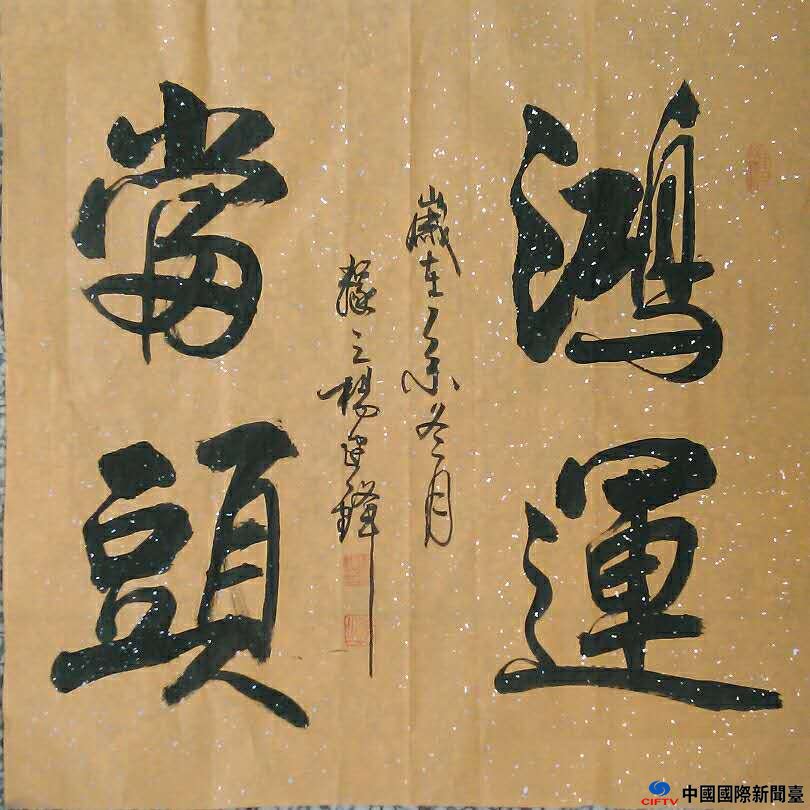 鴻運
當頭
歲在乙未冬月
之楊建鋒
CIFTV
中國國際新聞臺